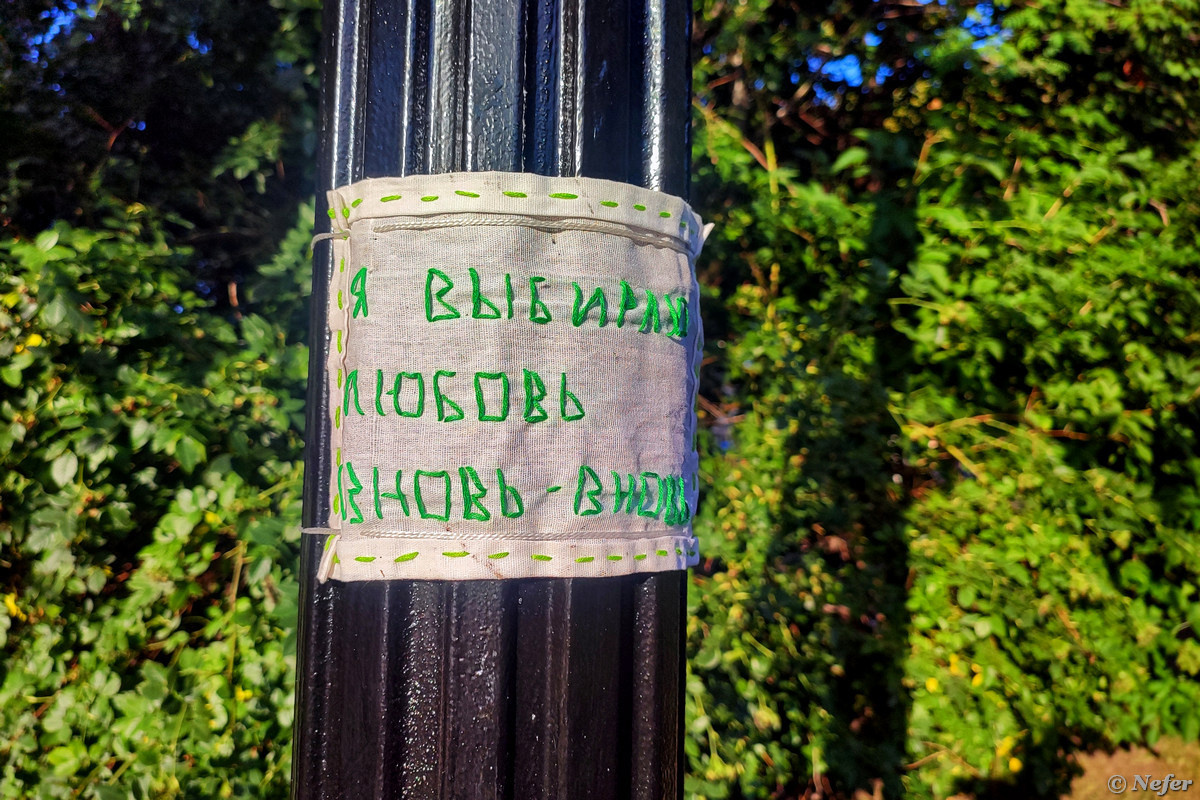 Я ВЫБИРАЮ
ЛЮБОВЬ
ВНОВЬ-ВНОВЬ
© Nefer